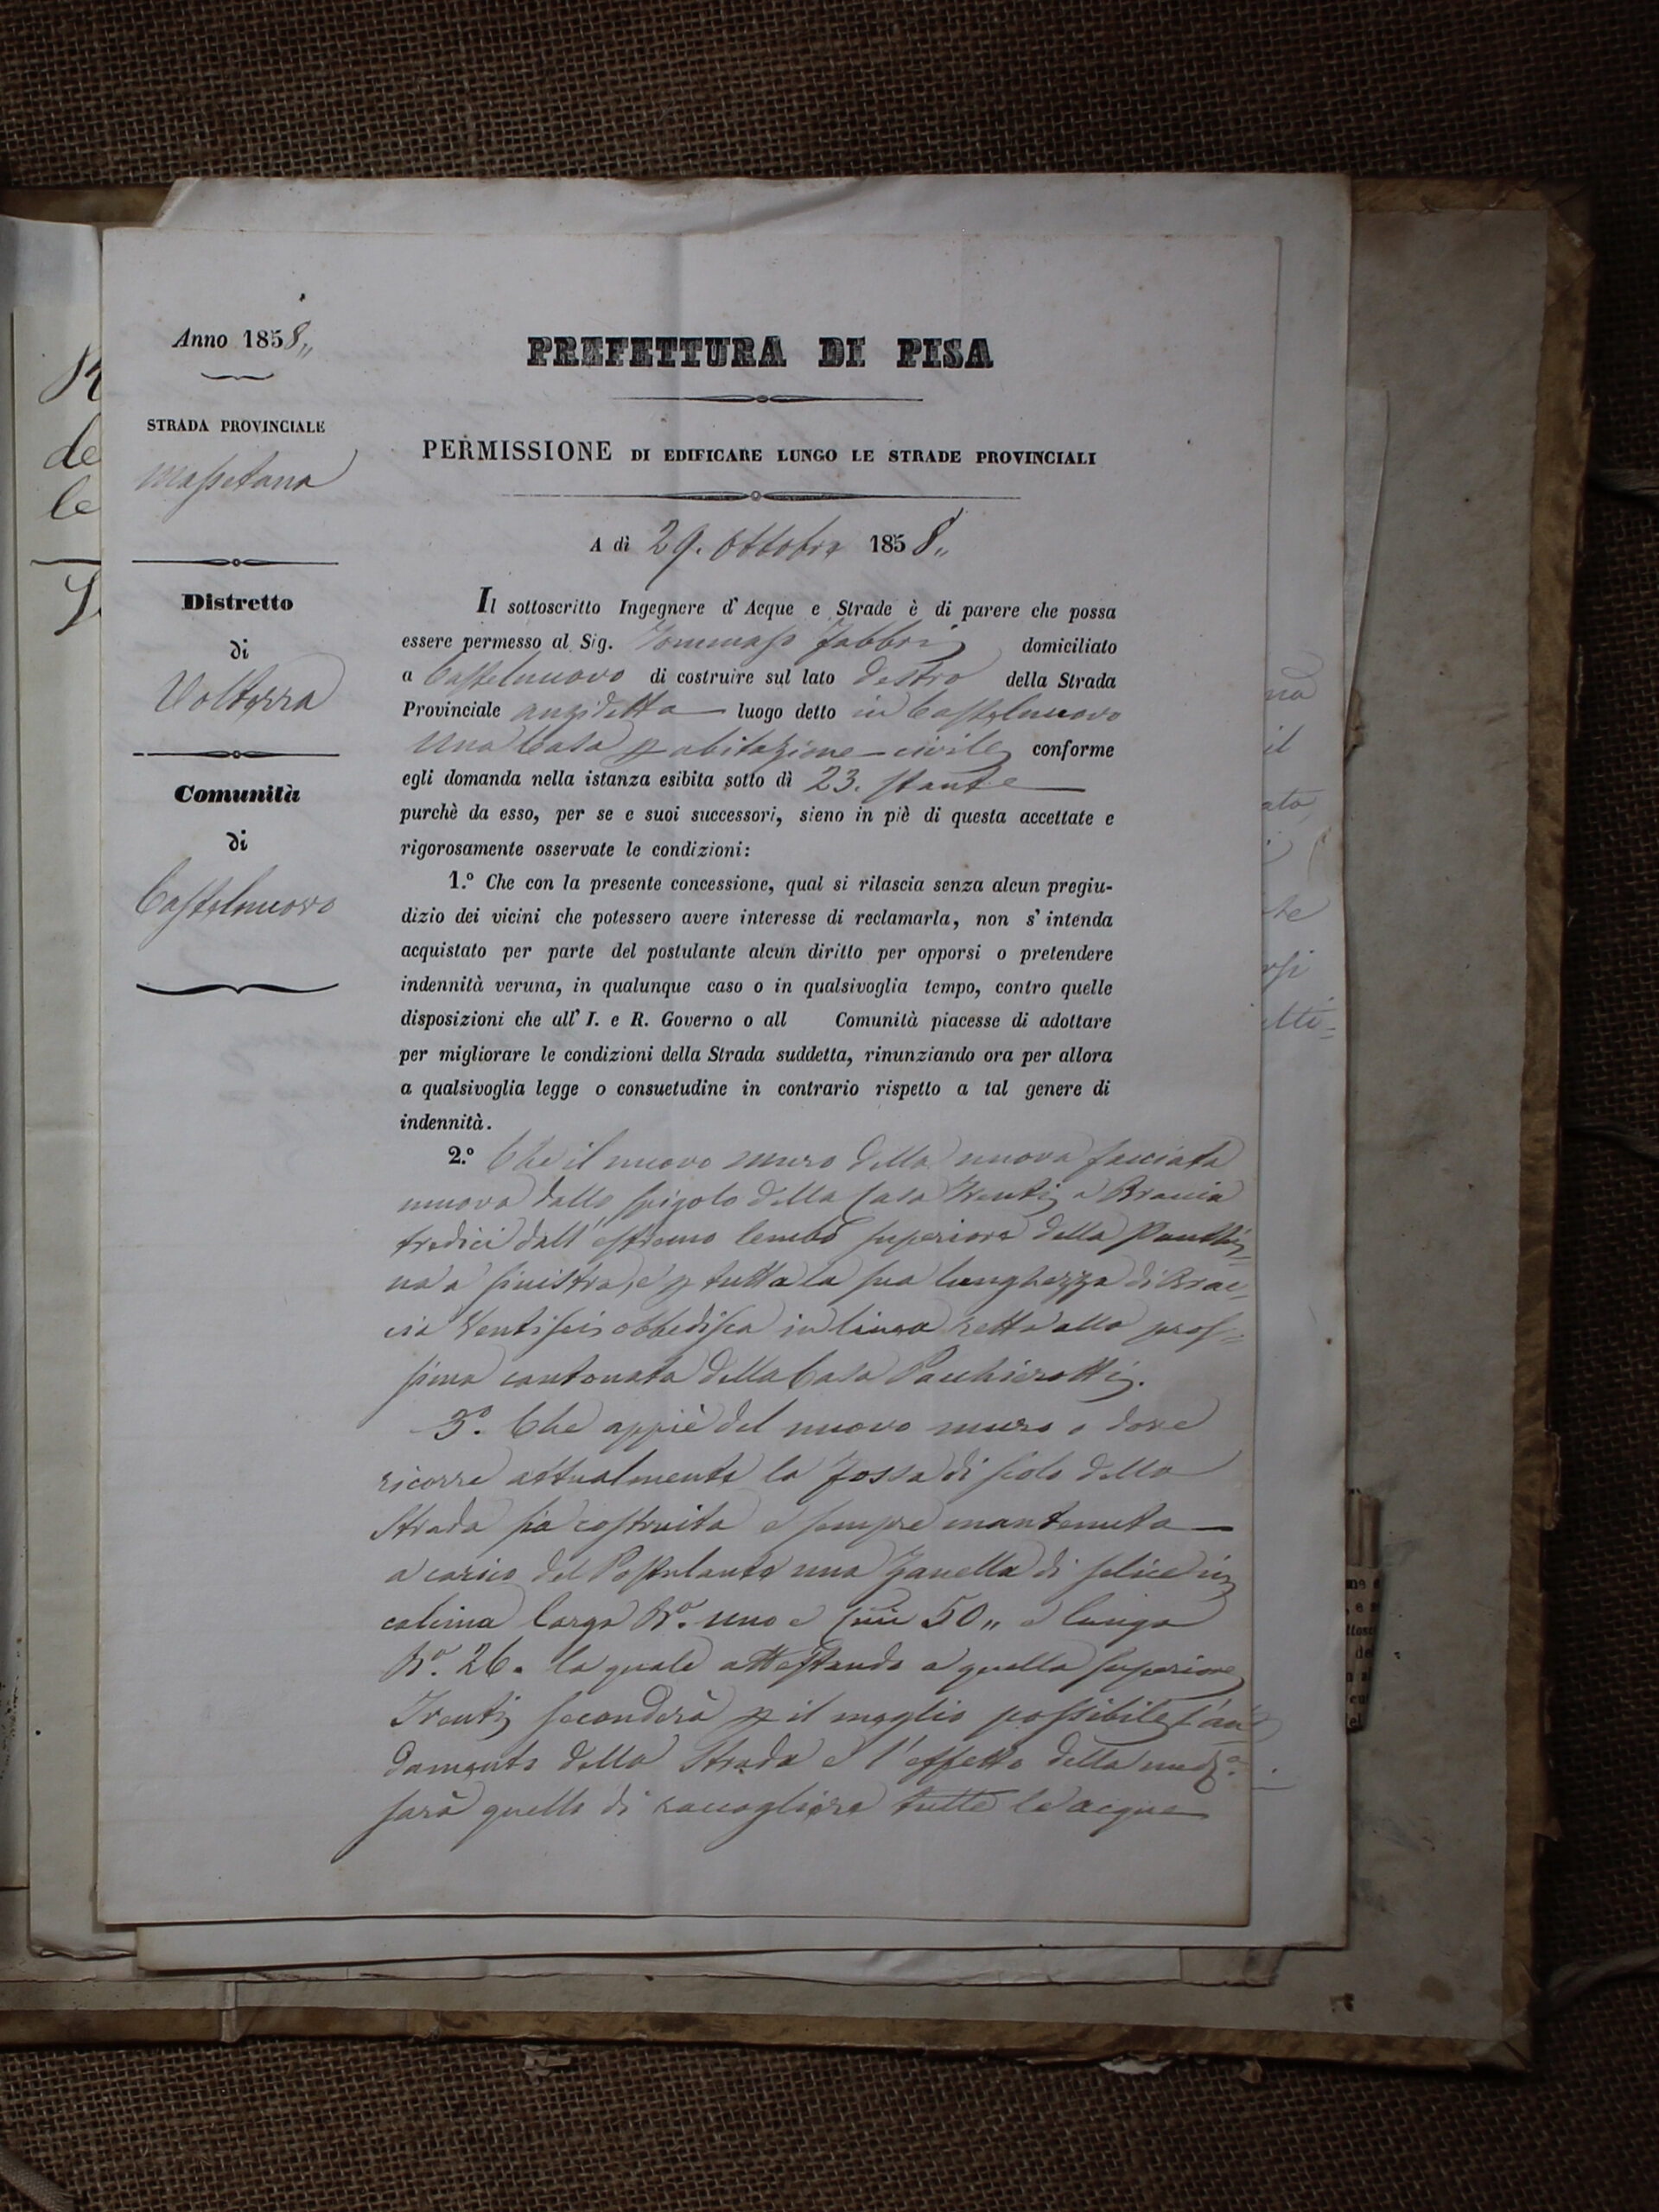 Anno 1858„
STRADA PROVINCIALE
Massetana
Distretto
di
Volterra
Comunità
di
Castelnuovo
PREFETTURA DI PISA
PERMISSIONE DI EDIFICARE LUNGO LE STRADE PROVINCIALI
A dì 29. Ottobre 1858„
Il sottoscritto Ingegnere d' Acque e Strade è di parere che possa
essere permesso al Sig. Tommaso Fabbri domiciliato
a Castelnuovo di costruire sul lato destro della Strada
Provinciale anzidetta luogo detto in Castelnuovo
Una Casa p abitazione civile conforme
egli domanda nella istanza esibita sotto dì 23. stante
purchè da esso, per se e suoi successori, sieno in piè di questa accettate e
rigorosamente osservate le condizioni:
1.° Che con la presente concessione, qual si rilascia senza alcun pregiu-
dizio dei vicini che potessero avere interesse di reclamarla, non s' intenda
acquistato per parte del postulante alcun diritto per opporsi o pretendere
indennità veruna, in qualunque caso o in qualsivoglia tempo, contro quelle
disposizioni che all' I. e R. Governo o all Comunità piacesse di adottare
per migliorare le condizioni della Strada suddetta, rinunziando ora per allora
a qualsivoglia legge o consuetudine in contrario rispetto a tal genere di
indennità.
2.° Che il nuovo muro della nuova facciata
muova dallo spigolo della Casa a Braccia
tredici dall' estremo lembo superiore della Panchi=
na a sinistra, e p tutta la sua lunghezza di Brac=
cia Ventisei obbedisca in linea retta alla pros=
sima cantonata della Casa Pacchierotti.
3°. Che appiè del nuovo muro e dove
ricorre attualmente la Fossa di scolo della
Strada sia costruita e sempre mantenuta
a carico del Postulante una Zanella di selice in
calcina larga B.ª uno e 50„ e lunga
B.ª 26. la quale attestando a quella superiore
seconderà p il meglio possibile l'an
damento della Strada e l'effetto della med.ª
sarà quello di raccogliere tutte le acque
na
il
ato